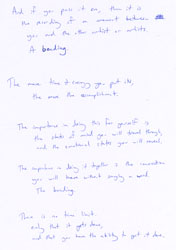 And if you pass it on, then it is
the sending of a moment between
you and the other artist or artists.
A bonding.
The more time & energy you put in,
the more the compliment.
The importance in doing this for yourself is
the state of mind you will travel through,
and the emotional states you will reveal.
The importance in doing it together is the connection
you will have without saying a word.
The bonding.
There is no time limit.
only that it gets done,
and that you have the ability to get it done.